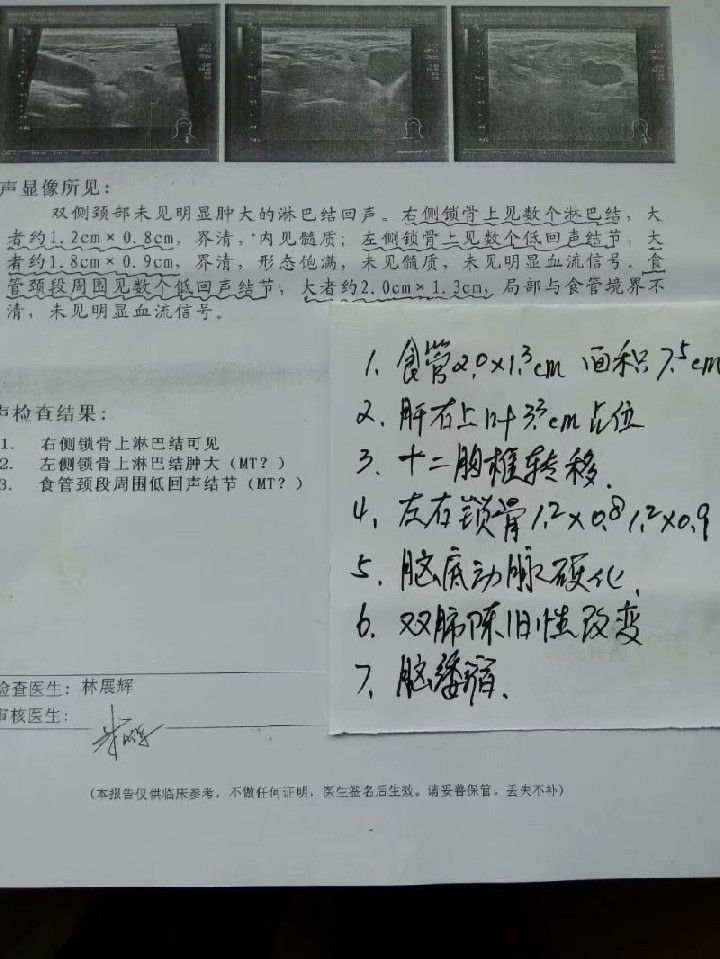 声显像所见：
双侧颈部未见明显肿大的淋巴结回声。右侧锁骨上见数个淋巴结，大
者约1.2cm×0.8cm，界清，内见髓质；左侧锁骨上见数个低回声结节，大
者约1.8cm×0.9cm，界清，形态饱满，未见髓质，未见明显血流信号。食
管颈段周围见数个低回声结节，大者约2.0cm×1.3cm，局部与食管境界不
清，未见明显血流信号。
声检查结果：
1. 右侧锁骨上淋巴结可见
2. 左侧锁骨上淋巴结肿大（MT？）
3. 食管颈段周围低回声结节（MT？）
1、食管2.0×1.3cm 面积7.5cm
2、肝右上叶3.3cm占位
3、十二胸椎转移.
4、左右锁骨1.2×0.8 1.2×0.9
5、脑底动脉硬化.
6、双肺陈旧性改变
7、脑萎缩.
检查医生：林展辉
审核医生：
（本报告仅供临床参考，不做任何证明，医生签名后生效。请妥善保管，丢失不补）